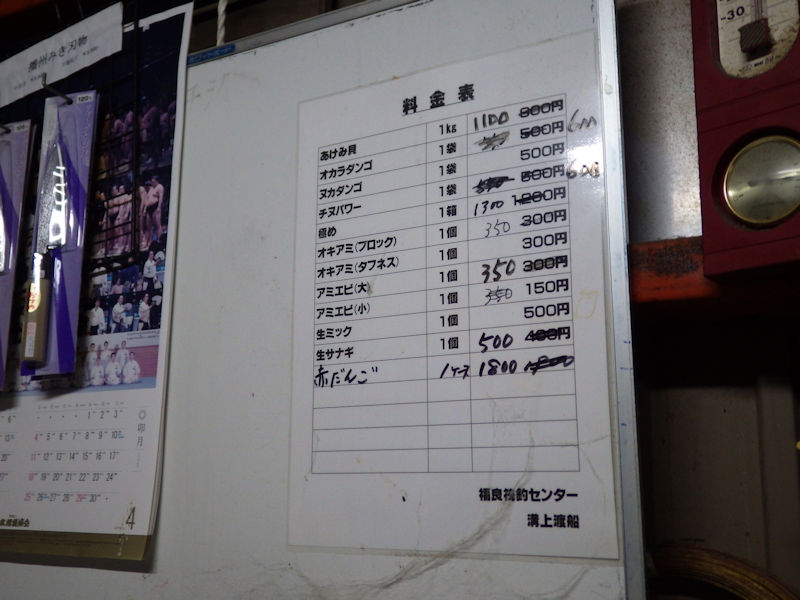 播州みき刃物
120
料金表
あけみ貝 1kg 1100 800円
オカラダンゴ 1袋 500円 600
ヌカダンゴ 1袋 500円
チヌパワー 1袋 500円 600
極め 1箱 1300 1200円
オキアミ(ブロック) 1個 350 300円
オキアミ(タフネス) 1個 300円
アミエビ(大) 1個 350 300円
アミエビ(小) 1個 150円
生ミック 1個 500円
生サナギ 1個 500 400円
赤だんご 1ケース 1800
福良筏釣センター
溝上渡船
1 2 3
4 5 6 7 8 9 10
11 12 13 14 15 16 17
18 19 20 21 22 23 24
25 26 27 28 29 30
卯月
4
-30